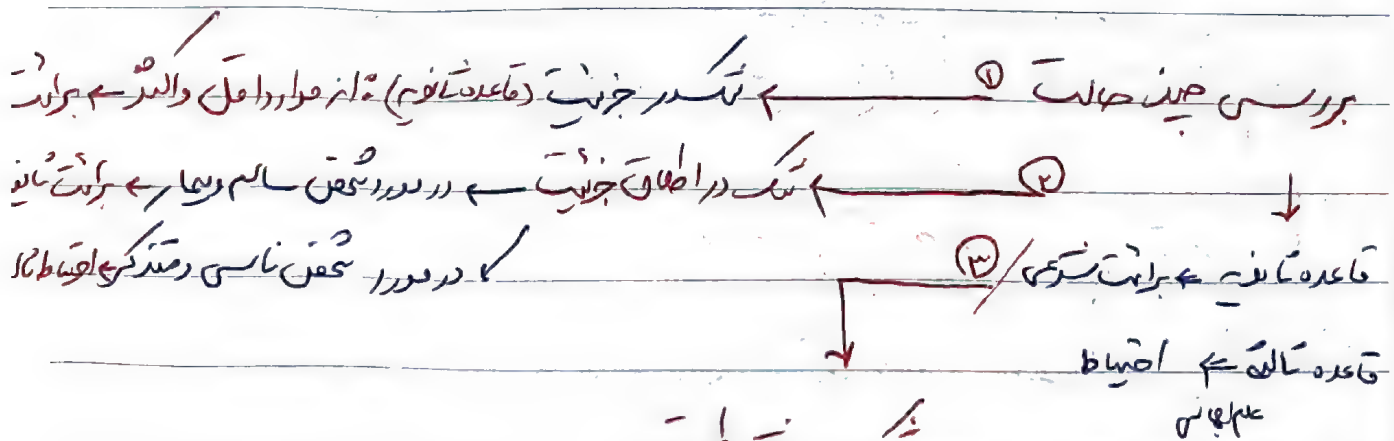 بررسی چند حالت ① ← شک در جزئیت (قاعده ثانویه): از موارد اقل و اکثر ← برائت
② ← شک در اطلاق جزئیت ← در مورد شخص سالم و بیمار ← برائت ثانو
قاعده ثانویه ← برائت شرعی / ③ ↙ در مورد شخص ناسی و متذکر ← احتیاط ثا
قاعده ثالثه ← احتیاط
علم اجمالی